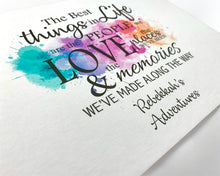 The Best
things in Life
are the PEOPLE
LOVE places
& the memories
WE'VE MADE ALONG THE WAY
Rebekkah's
Adventures